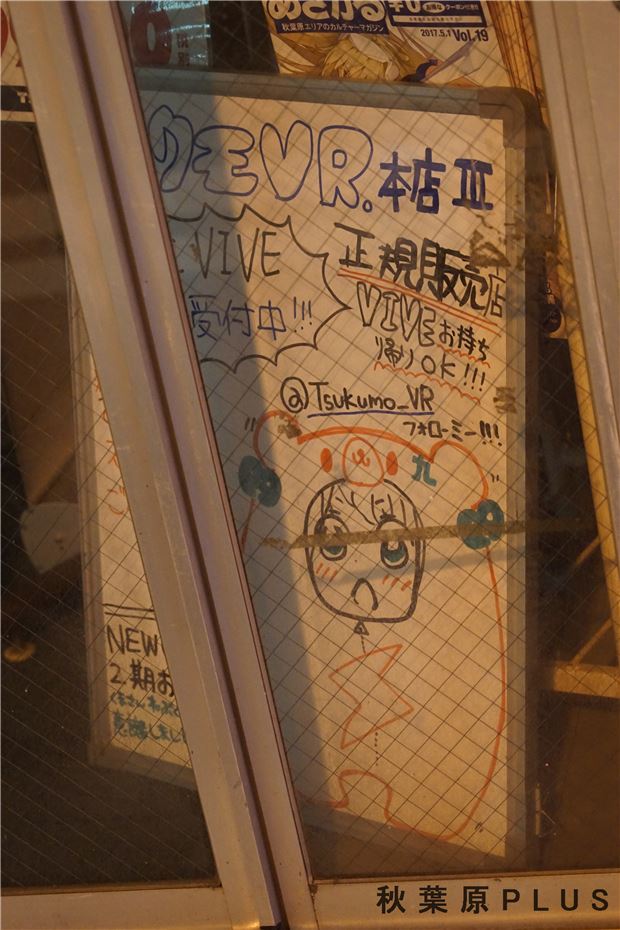 あきばる ¥0
秋葉原エリアのカルチャーマガジン
2017.5.1 Vol.19
クモVR. 本店 III
VIVE
受付中!!!
正規販売店
VIVEお持ち
帰りOK!!!
@Tsukumo_VR
フォローミー!!!
九
NEW
2期お
秋葉原PLUS